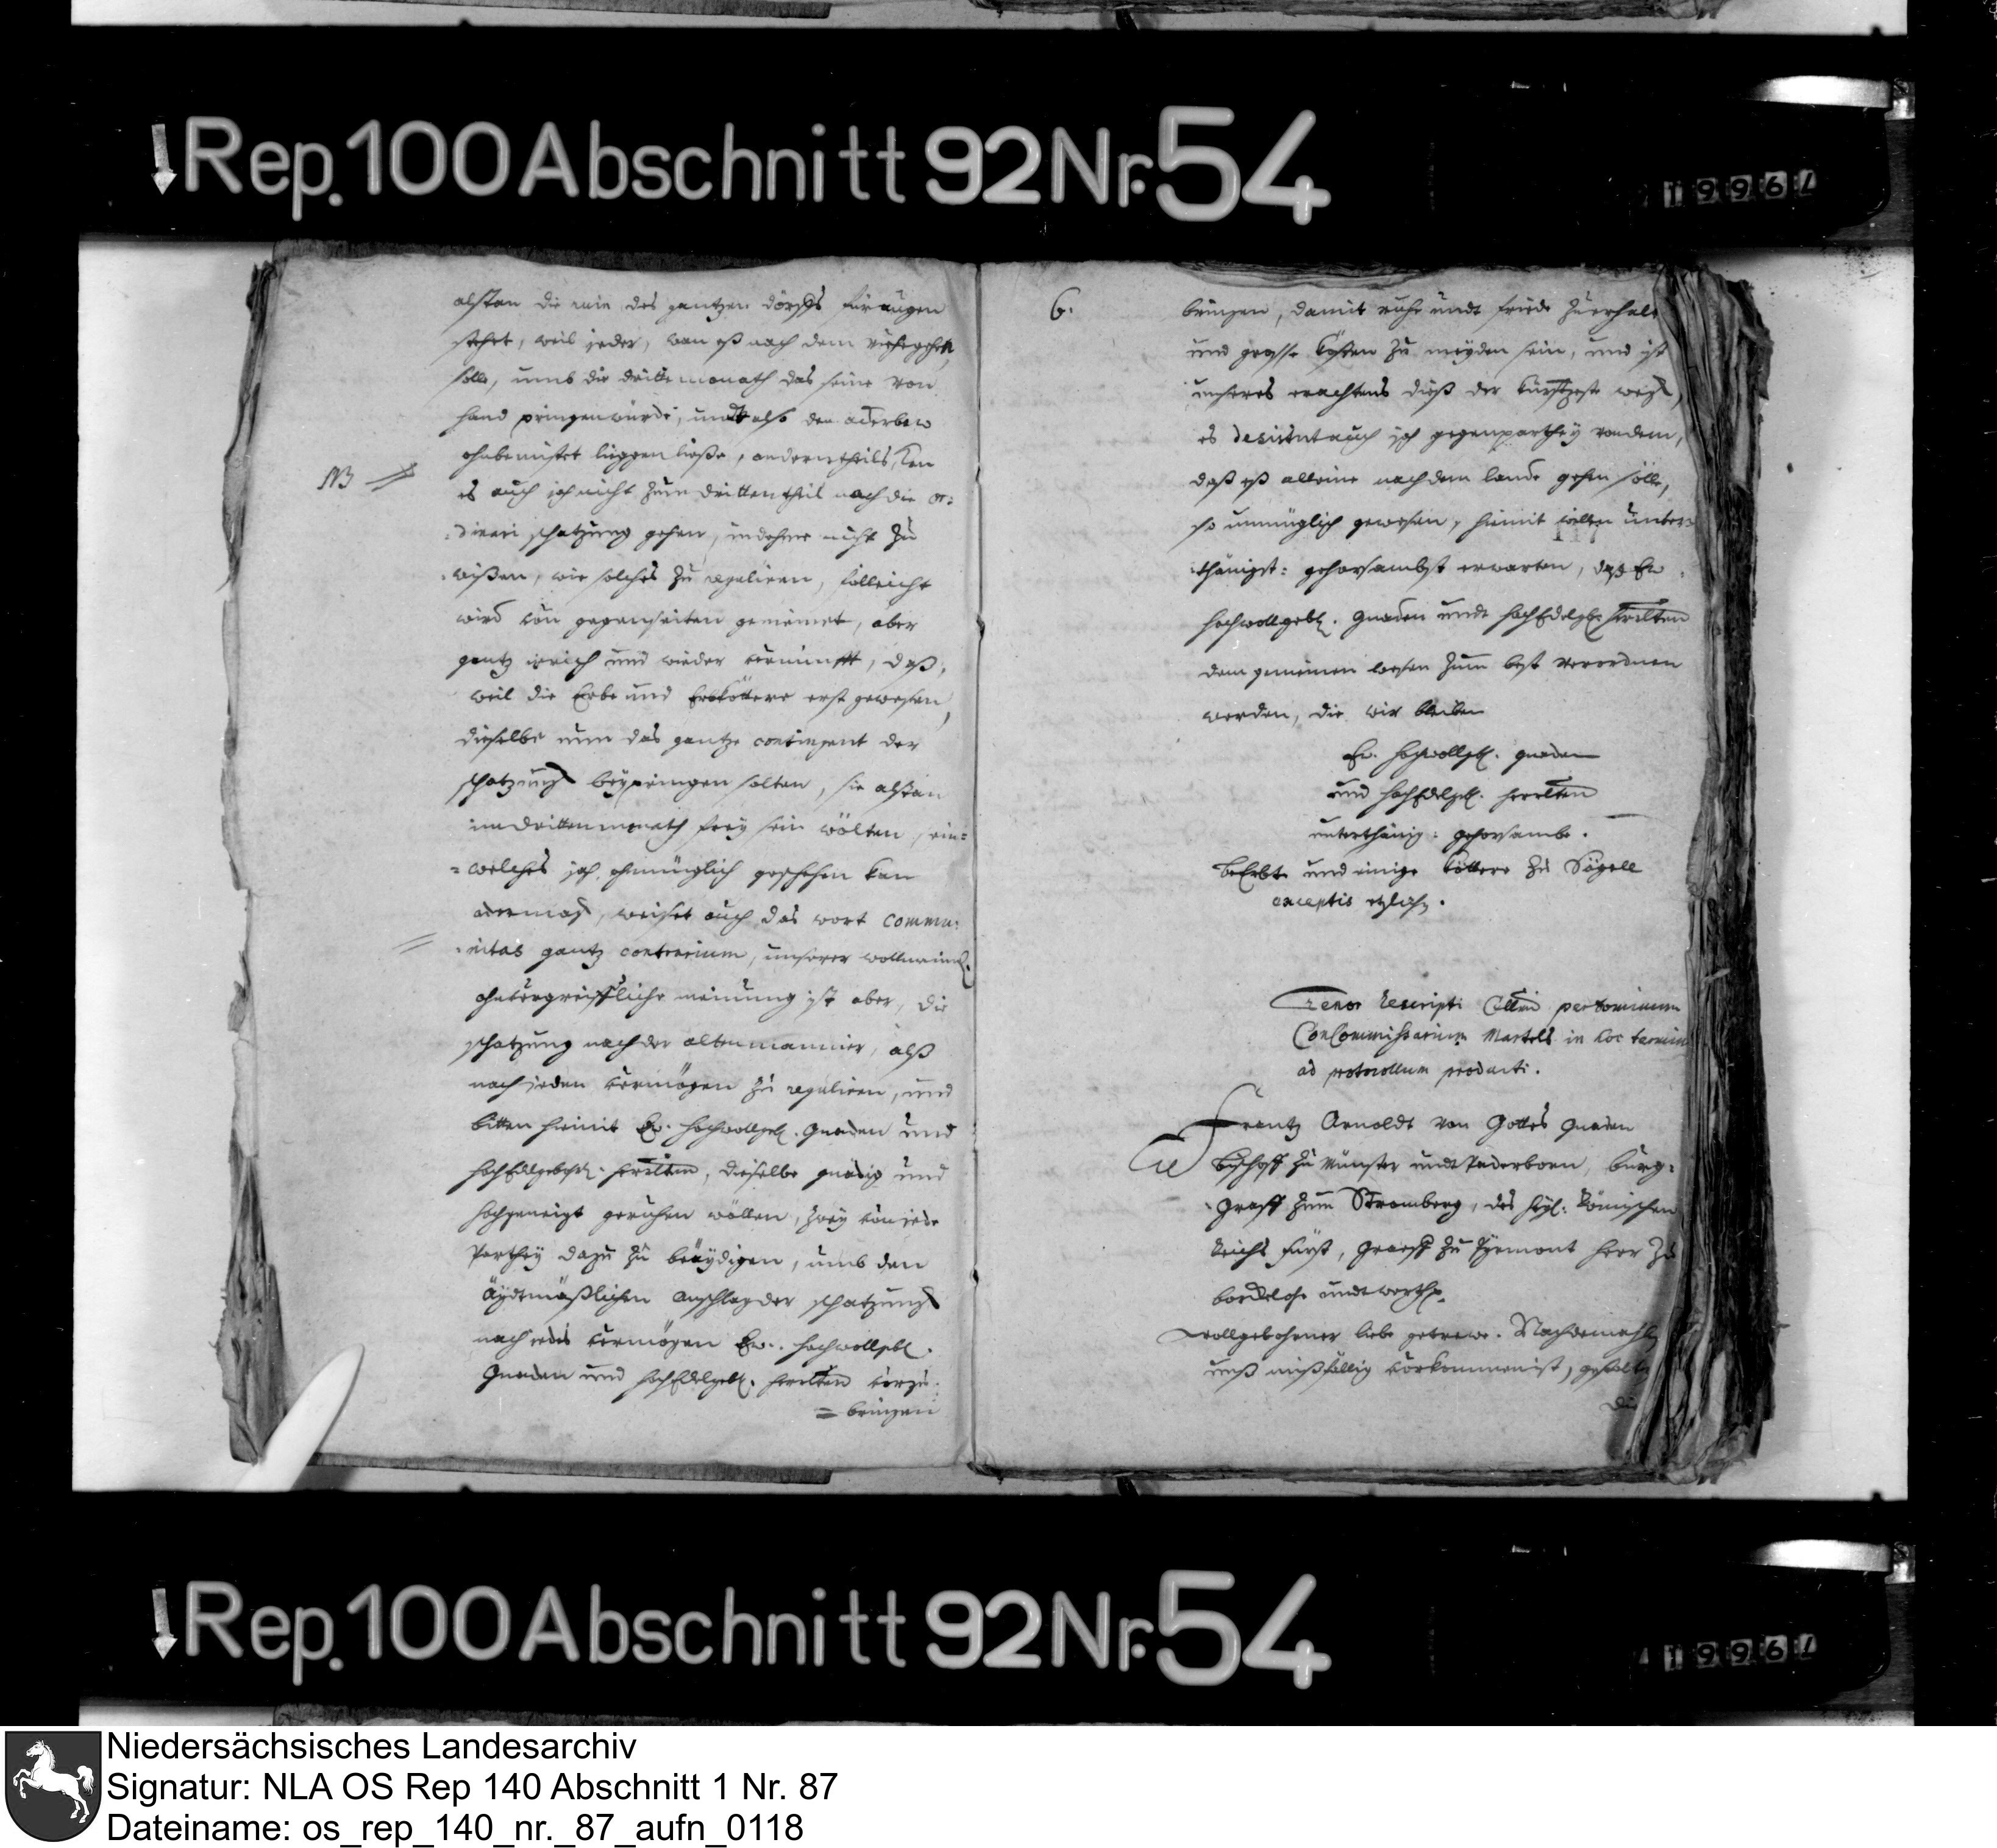 Rep. 100 Abschnitt 92 Nr. 54
1996
alßdan die ruin des gantzen dörffs für augen
stehet, weil jeder, wan eß nach dem viehe gehen
solle, umb die dritte monath das seine von
hand pringen würde, undt also den ackerbaw
ohnbemistet liggen ließe, anderntheils kan
NB es auch ja nicht zum dritten theil nach die or-
dinari schatzung gehen, indehme nicht zu
wißen, wie solches zu reguliren, villeicht
wird von gegenseiten gemeinet, aber
gantz irrich und wieder vernunfft, daß,
weil die Erbe und Erbköttere erst gewesen,
dieselbe nun das gantze contingent der
schatzung beypringen solten, sie alßdan
im dritten monath frey sein wölten, ein-
welches ja ohnmüglich geschehen kan
oder mag, weiset auch das wort commu-
nitas gantz contrarium, unserer wollmeinl.
ohnvorgreiffliche meinung ist aber, die
schatzung nach der alten mannier, alß
nach jeden vermögen zu reguliren, und
bitten hiemit Ew. Hochwollgeb. Gnaden und
HochEdelgeb. herrlten, dieselbe gnädig und
hochgeneigt geruhen wöllen, zwey von jede
Parthey dazu zu beäydigen, umb den
äydtmäßlichen Anschlag der schatzung
nach jedes vermögen Ew. Hochwollgeb.
Gnaden und HochEdelgeb. herrlten vorzu-
= bringen
6.
bringen, damit ruhe undt friede zu erhalt
und grosse kösten zu meyden sein, und ist
unseres erachtens dieß der kürtzeste weg,
es desistut auch ja gegenparthey von dem,
daß eß alleine nach dem lande gehen sölle,
so unmüglich gewesen, hiemit wollen unter-
thänigst: gehorsambst erwarten, daß Ew
Hochwollgeb. Gnaden undt HochEdelgb. herrlten
dem gemeinen wesen zum best verordnen
werden, die wir bleiben
Ew. Hochwollgeb. gnaden
und HochEdelgeb. herrlten
unterthänig: gehorsambe.
beErbte und einige köttere zu Sögell
exceptis etzliche.
Tenor Rescripti Celsmi per Dominum
ConCommissarium Martels in hoc termin
ad protocollum producti.
Frantz Arnoldt von Gottes Gnaden
Bischoff zu Münster undt Paderborn, Burg-
graff zum Stromberg, des heyl. Römischen
Reichs Fürst, Graeff zu Pyrmont Herr zu
Bordelohe undt Werth p.
Wollgebohrner liebe getrewe. Nachdemahlen
unß mißfällig vorkommen ist, gestalt
die
Rep. 100 Abschnitt 92 Nr. 54
1996
Niedersächsisches Landesarchiv
Signatur: NLA OS Rep 140 Abschnitt 1 Nr. 87
Dateiname: os_rep_140_nr._87_aufn_0118